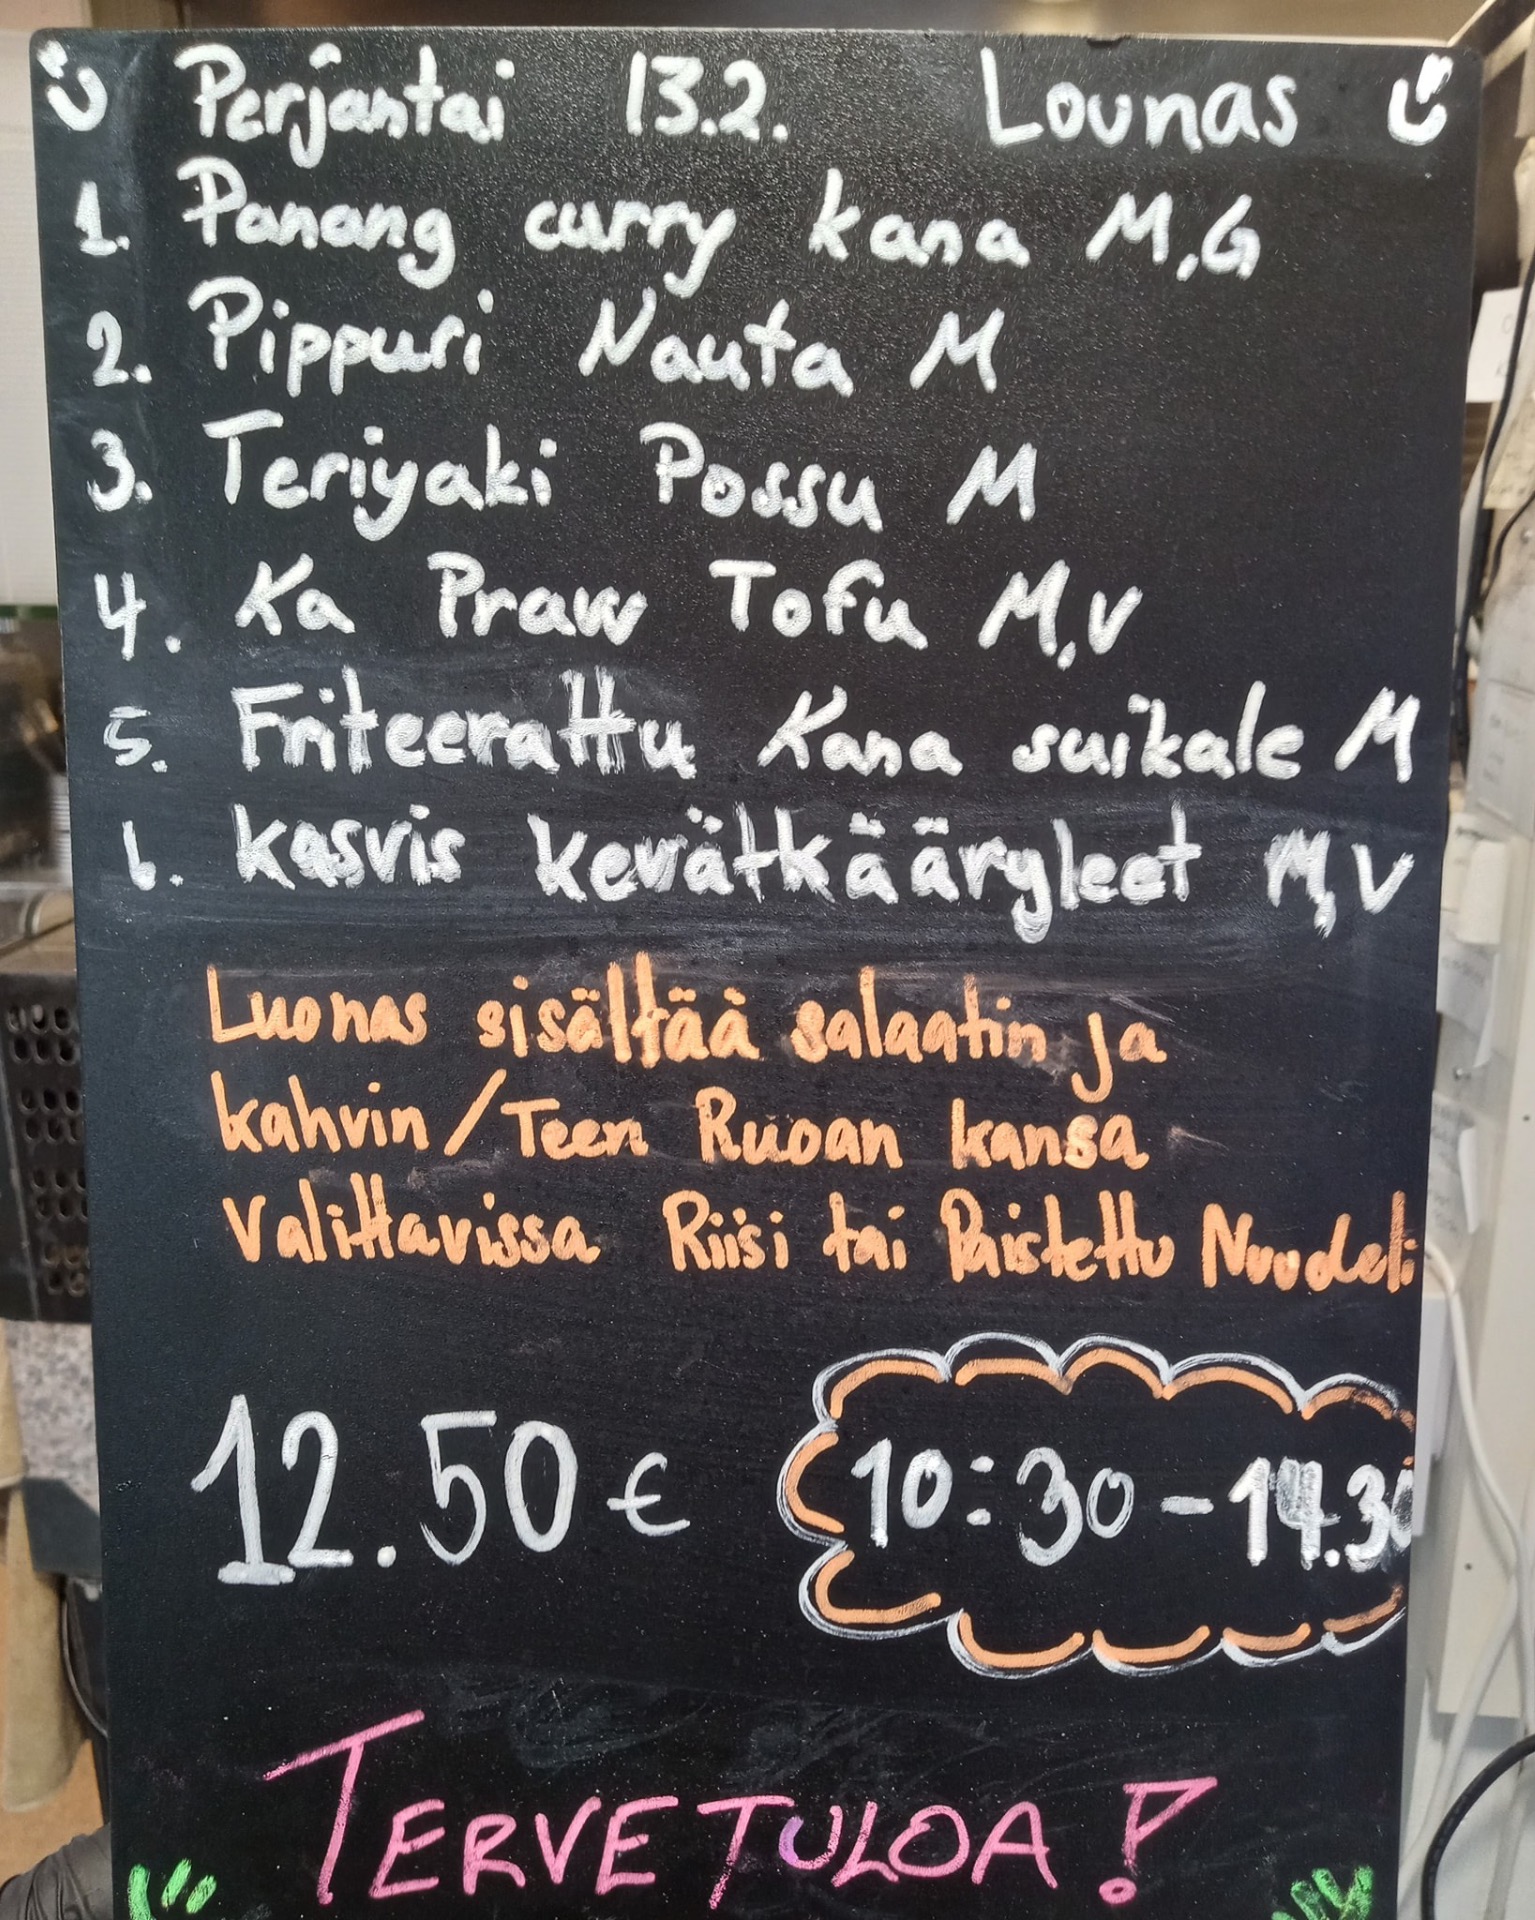 Perjantai 13.2. Lounas
1. Panang curry kana M,G
2. Pippuri Nauta M
3. Teriyaki Possu M
4. Ka Praw Tofu M,V
5. Friteerattu Kana suikale M
6. kasvis kevätkääryleet M,V
Luonas sisältää salaatin ja
kahvin/Teen Ruoan kansa
Valittavissa Riisi tai Paistettu Nuudeli
12.50€
10:30-14.30
TERVETULOA!